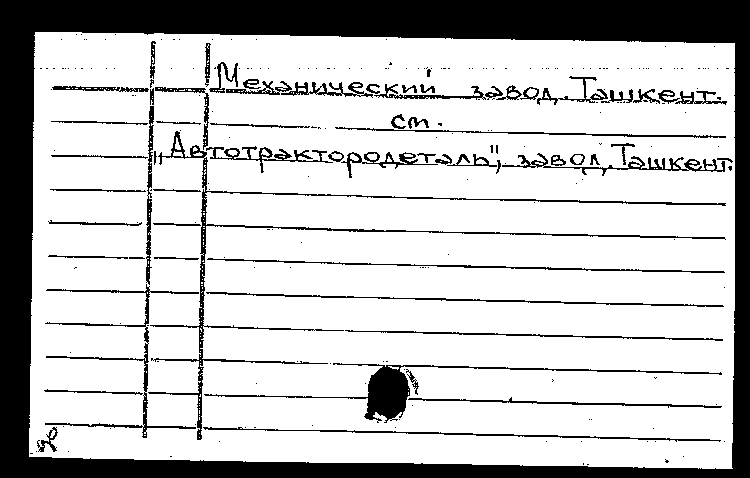 Механический завод. Ташкент.
см.
„Автотрактородеталь", завод, Ташкент.